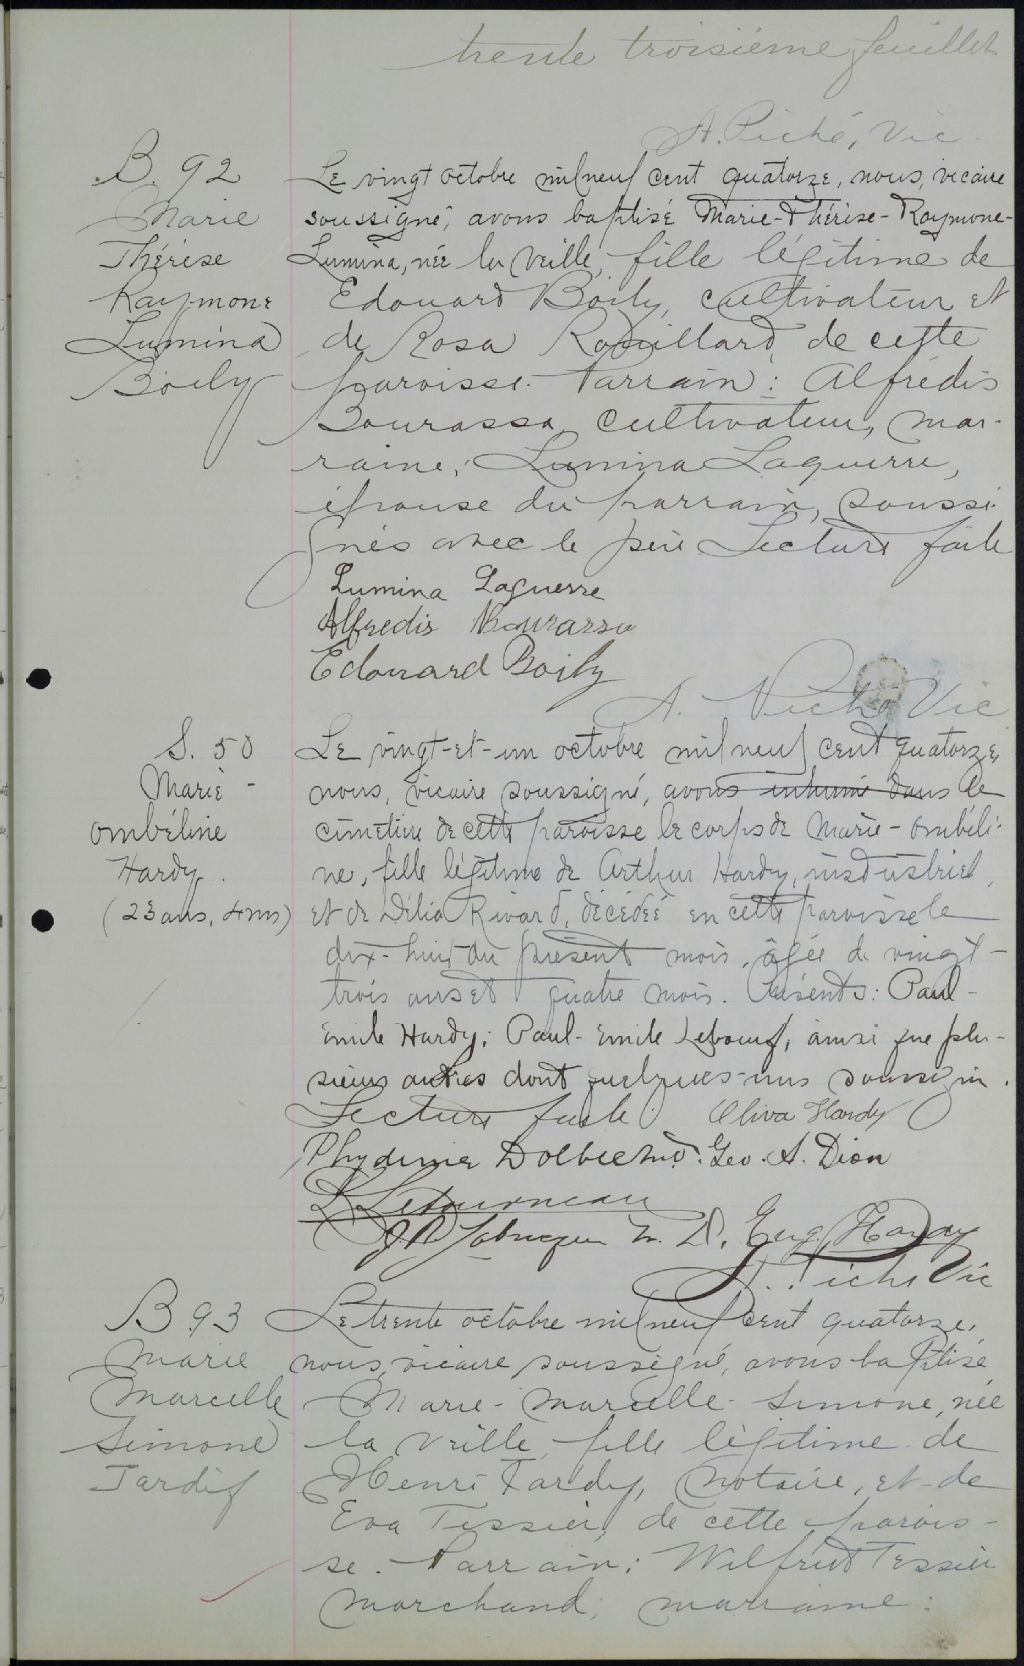 trente troisième feuillet
A. Piché, Vic.
B. 92
Marie
Thérèse
Raymone
Lumina
Boily
Le vingt octobre mil neuf cent quatorze, nous, vicaire
soussigné, avons baptisé Marie-Thérèse-Raymone-
Lumina, née la veille, fille légitime de
Edouard Boily, cultivateur et
de Rosa Robillard, de cette
paroisse. Parrain: Alfrédis
Bourassa, cultivateur, mar-
raine; Lumina Laguerre,
épouse du parrain, soussi-
gnés avec le père Lecture faite
Lumina Laguerre
Alfredis Bourassa
Edouard Boily
A. Piché Vic
S. 50
Marie-
ombéline
Hardy.
(23 ans, 4 ms)
Le vingt-et-un octobre mil neuf cent quatorze,
nous, vicaire soussigné, avons inhumé dans le
cimetière de cette paroisse le corps de Marie-ombéli-
ne, fille légitime de Arthur Hardy, industriel,
et de Délia Rivard, décédée en cette paroisse le
dix-huit du présent mois, âgée de vingt-
trois ans et quatre mois. Présents: Paul-
Emile Hardy; Paul-Emile Leboeuf, ainsi que plu-
sieurs autres dont quelques-uns soussign.
Lecture faite. Oliva Hardy
Geo. A. Dion
Letourneau
M. D. Eug. Hardy
A. Piché Vic
B 93
Marie
Marcelle
Simone
Tardif
Le trente octobre mil neuf cent quatorze,
nous, vicaire soussigné, avons baptisé
Marie-Marcelle-Simone, née
la veille, fille légitime de
Henri Tardif, notaire, et de
Eva Tessier, de cette parois-
se. Parrain: Wilfrid Tessier
marchand; marraine: